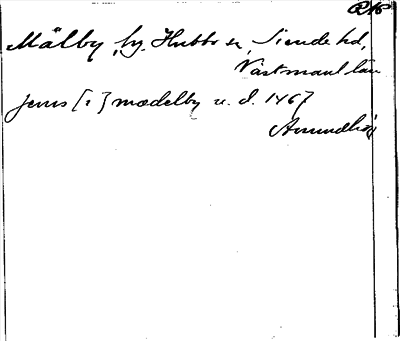 Mälby, by, Hubbo sn, Siende hd,
Västmanl län
jems [i] mædelby u. d. 1467